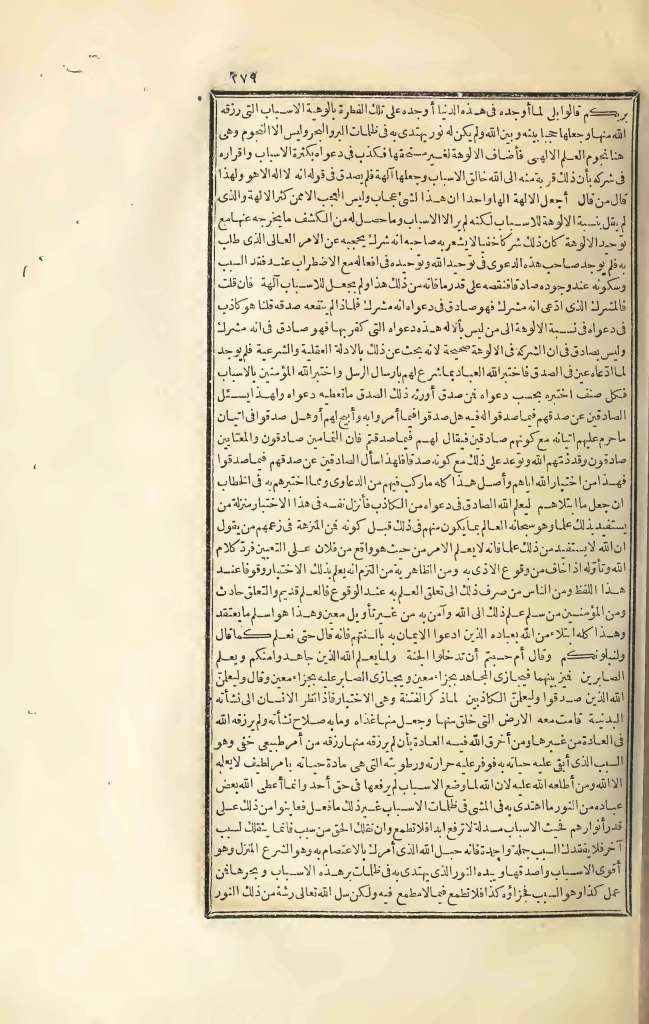 ٢٧٩
بربكم قالوا بلى لما أوجده فى هذه الدنيا أوجده على تلك الفطرة بالوهية الاسباب التى رزقه
الله منها وجعلها حجبا بينه وبين الله ولم يكن له نور يهتدى به فى ظلمات البر والبحر وليس الا النجوم وهى
هنا نجوم العلم الالهى فأضاف الالوهة لغير مستحقها فكذب فى دعواه بكثرة الاسباب واقراره
فى شركه بأن ذلك قربة منه الى الله خالق الاسباب وجعلها آلهة فلم يصدق فى قوله انه لا اله الا هو ولهذا
قال من قال أجعل الآلهة الها واحدا ان هذا لشئ عجاب وليس العجب الا ممن كثر الآلهة والذى
لم يقل بنسبة الالوهة للاسباب لكنه لم ير الا الاسباب وما حصل له من الكشف ما يخرجه عنها مع
توحيد الالوهة كان ذلك شركا خفيا لا يشعر به صاحبه انه شرك يحجبه عن الامر العالى الذى طلب
به فلم يوجد صاحب هذه الدعوى فى توحيد الله وتوحيده فى افعاله مع الاضطراب عند فقد السبب
وسكونه عند وجوده صادقا فنقصه على قدر ما فاته من ذلك هذا ولم يجعل للاسباب آلهة فان قلت
فالمشرك الذى ادعى انه مشرك فهو صادق فى دعواه انه مشرك فلماذا لم ينفعه صدقه قلنا هو كاذب
فى دعواه فى نسبة الالوهة الى من ليس باله هذه دعواه التى كفر بها فهو صادق فى انه مشرك
وليس بصادق فى ان الشركة فى الالوهة صحيحة لانه بحث عن ذلك بالادلة العقلية والشرعية فلم يوجد
لما ادعاه عين فى الصدق فاختبر الله العباد بما شرع لهم بارسال الرسل واختبر الله المؤمنين بالاسباب
فكل صنف اختبره بحسب دعواه فمن صدق أورثه ذلك الصدق ما تعطيه دعواه ولهذا يسئل
الصادقين عن صدقهم فيما صدقوا فيه هل صدقوا فيما أمروا به وأبيح لهم أو هل صدقوا فى اتيان
ما حرم عليهم اتيانه مع كونهم صادقين فيقال لهم فيما صدقتم فان النمامين صادقون والمغتابين
صادقون وقد ذمهم الله وتوعد على ذلك مع كونه صدقا فلهذا سأل الصادقين عن صدقهم فيما صدقوا
فهذا من اختبار الله اياهم وأصل هذا كله ما ركب فيهم من الدعاوى ومما اختبرهم به فى الخطاب
ان جعل ما ابتلاهم ليعلم الله الصادق فى دعواه من الكاذب فأنزل نفسه فى هذا الاختبار منزلة من
يستفيد بذلك علما وهو سبحانه العالم بما يكون منهم فى ذلك قبل كونه فمن المنزهة فى زعمهم من يقول
ان الله لا يستفيد من ذلك علما فانه لا يعلم الامر من حيث هو واقع من فلان على التعيين فرد كلام
الله وتأوله اذ اخاف من وقوع الاذى به ومن الظاهرية من التزم انه يعلم بذلك الاختبار وقوفا عند
هذا اللفظ ومن الناس من صرف ذلك الى تعلق العلم به عند الوقوع فالعلم قديم والتعلق حادث
ومن المؤمنين من سلم علم ذلك الى الله وآمن به من غير تأويل معين وهذا هو اسلم ما يعتقد
وهذا كله ابتلاء من الله بعباده الذين ادعوا الايمان به بألسنتهم فانه قال حتى نعلم كما قال
ولنبلونكم وقال أم حسبتم أن تدخلوا الجنة ولما يعلم الله الذين جاهدوا منكم ويعلم
الصابرين فميز بينهما فيجازى المجاهد بجزاء معين ويجازى الصابر عليه بجزاء معين وقال وليعلمن
الله الذين صدقوا وليعلمن الكاذبين لما ذكر الفتنة وهى الاختبار فاذا نظر الانسان الى نشأته
البدنية قامت معه الارض التى خلق منها وجعل منها غذاه وما به صلاح نشأته ولم يرزقه الله
فى العادة من غيرها ومن أخرق الله فيه العادة بأن لم يرزقه منها رزقه من أمر طبيعى خفى وهو
السبب الذى أبقى عليه حياته به فوفر عليه حرارته ورطوبته التى هى مادة حياته بامر لطيف لا يعلمه
الا الله ومن أطلعه الله عليه لان الله لما وضع الاسباب لم يرفعها فى حق أحد وانما أعطى الله بعض
عباده من النور ما اهتدى به فى المشى فى ظلمات الاسباب غير ذلك ما فعل فعاينوا من ذلك على
قدر أنوارهم فحجب الاسباب مسدلة لا ترفع ابدا فلا تطمع وان نقلك الحق من سبب فانما ينقلك لسبب
آخر فلا يفقدك السبب جملة واحدة فانه حبل الله الذى أمرك بالاعتصام به وهو الشرع المنزل وهو
أقوى الاسباب واصدقها وبيده النور الذى يهتدى به فى ظلمات بر هذه الاسباب وبحرها فمن
عمل كذا وهو السبب فجزاؤه كذا فلا تطمع فيما لا مطمع فيه ولكن سل الله تعالى رشة من ذلك النور